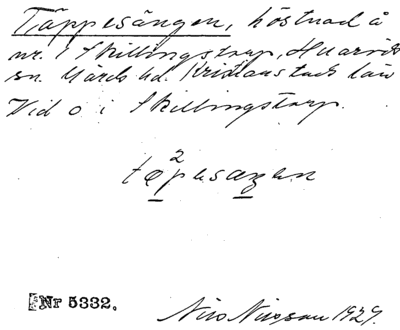 Täppesången, höstnad å
nr. 1 Skillingstorp, Hvarids
sn. Wards hd. Kristianstads län
Vid o i Skillingstorp.
2
tæpesaʒen
Nr 5332.
Nils Nilsson 1929.